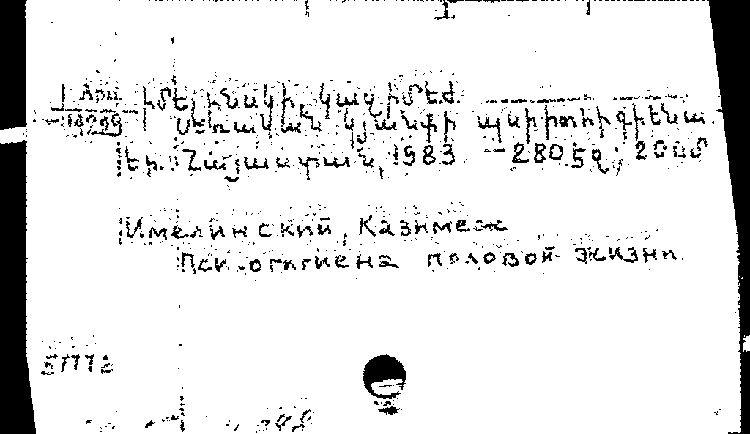 Արմ
14299
Իմելինսկի, Կազիմեժ.
Սեռական կյանքի պսիխոհիգիենա.
Եր. Հայաստան, 1983 — 280,5 զ.; 20սմ
Имелинский, Казимеж
Психогигиена половой жизни.